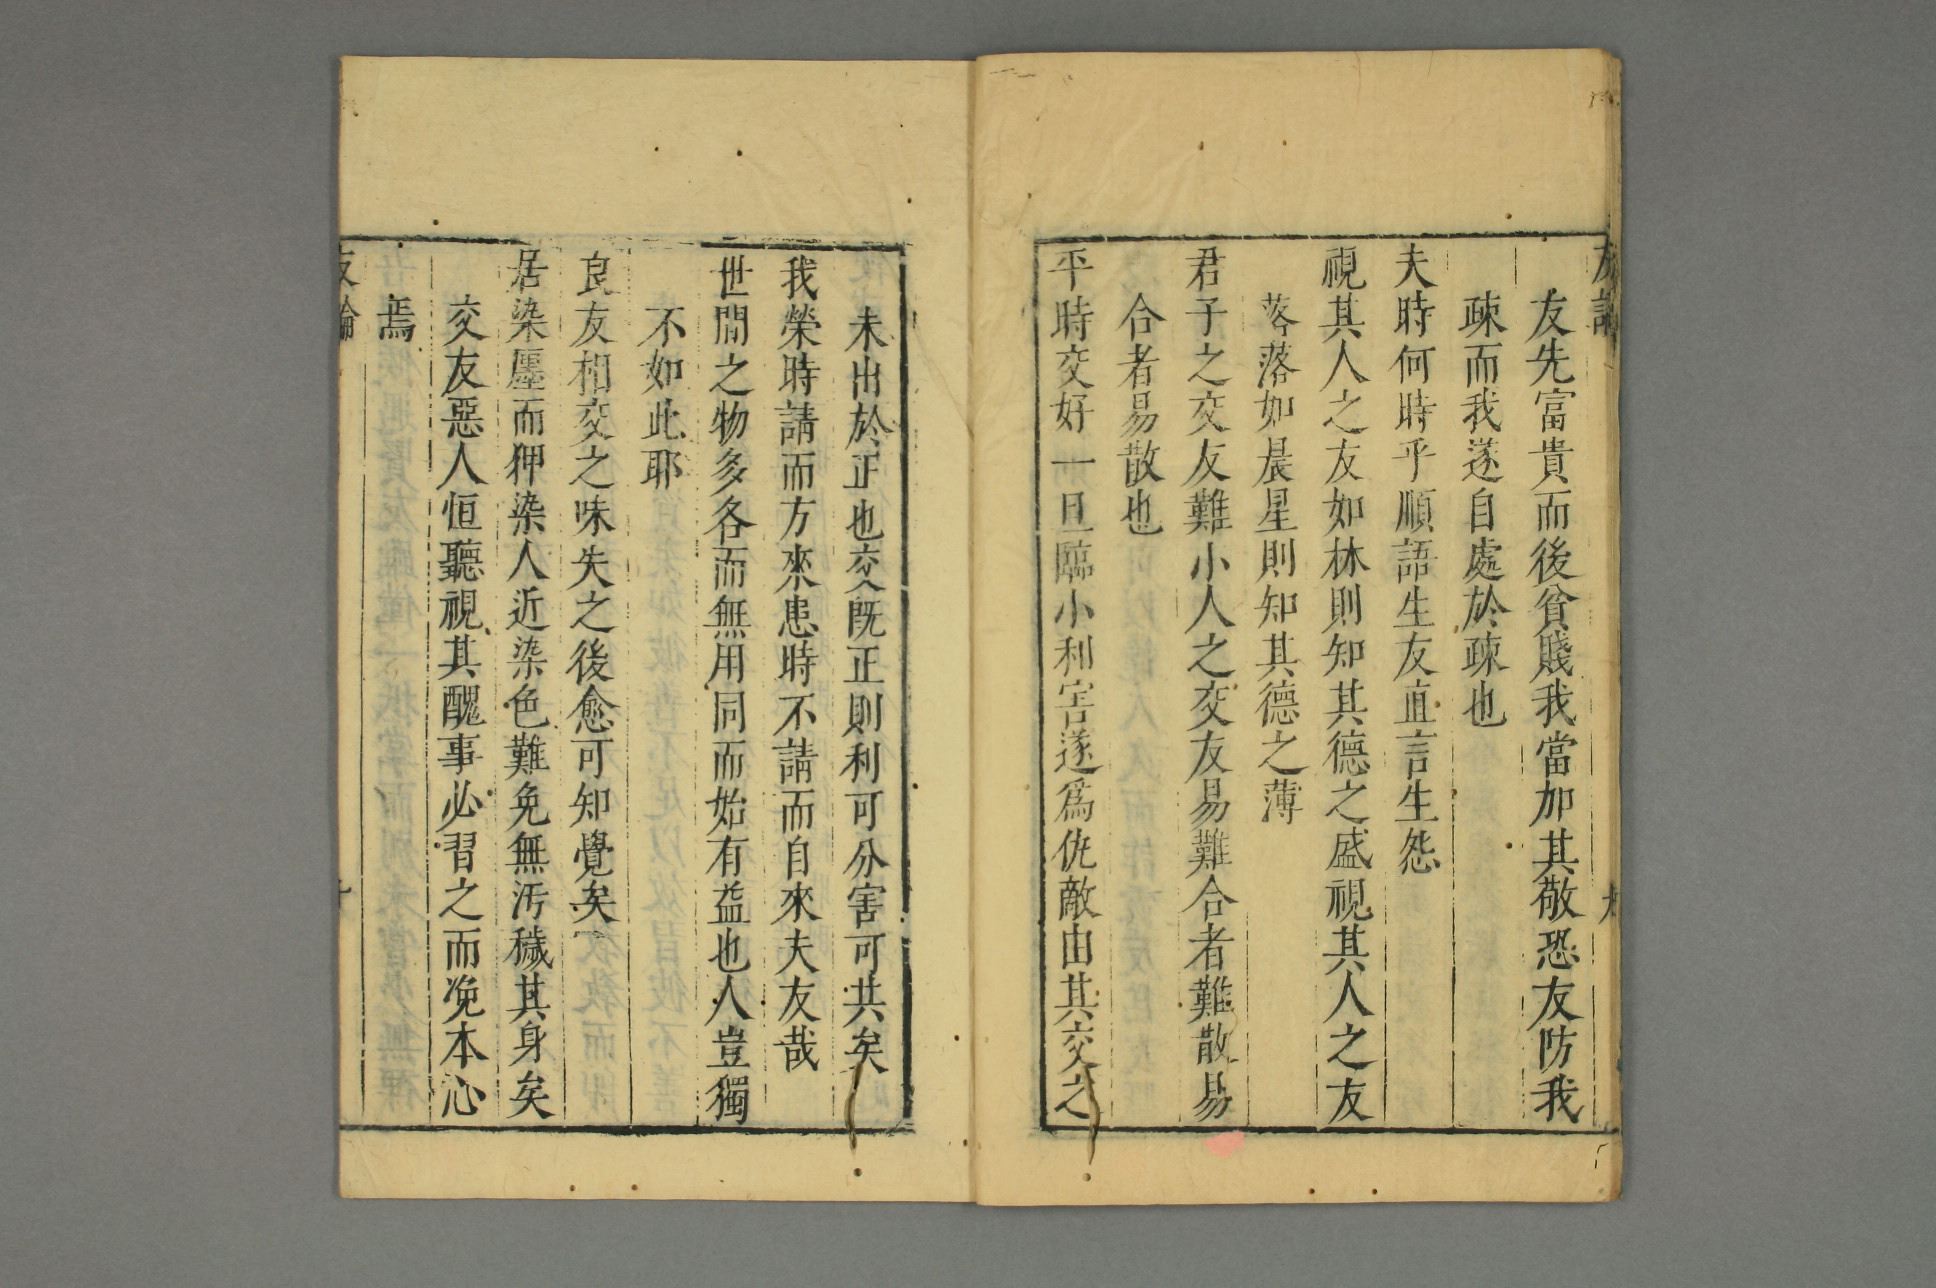 友論
九
友先富貴而後貧賤我當加其敬恐友防我
疎而我遂自處於疎也
夫時何時乎順語生友直言生怨
視其人之友如林則知其德之盛視其人之友
落落如晨星則知其德之薄
君子之交友難小人之交友易難合者難散易
合者易散也
平時交好一旦臨小利害遂爲仇敵由其交之
未出於正也交既正則利可分害可共矣
我榮時請而方來患時不請而自來夫友哉
世間之物多各而無用同而始有益也人豈獨
不如此耶
良友相交之味失之後愈可知覺矣
居染廛而狎染人近染色難免無汚穢其身矣
交友惡人恒聽視其醜事必習之而浼本心
焉
友論
十